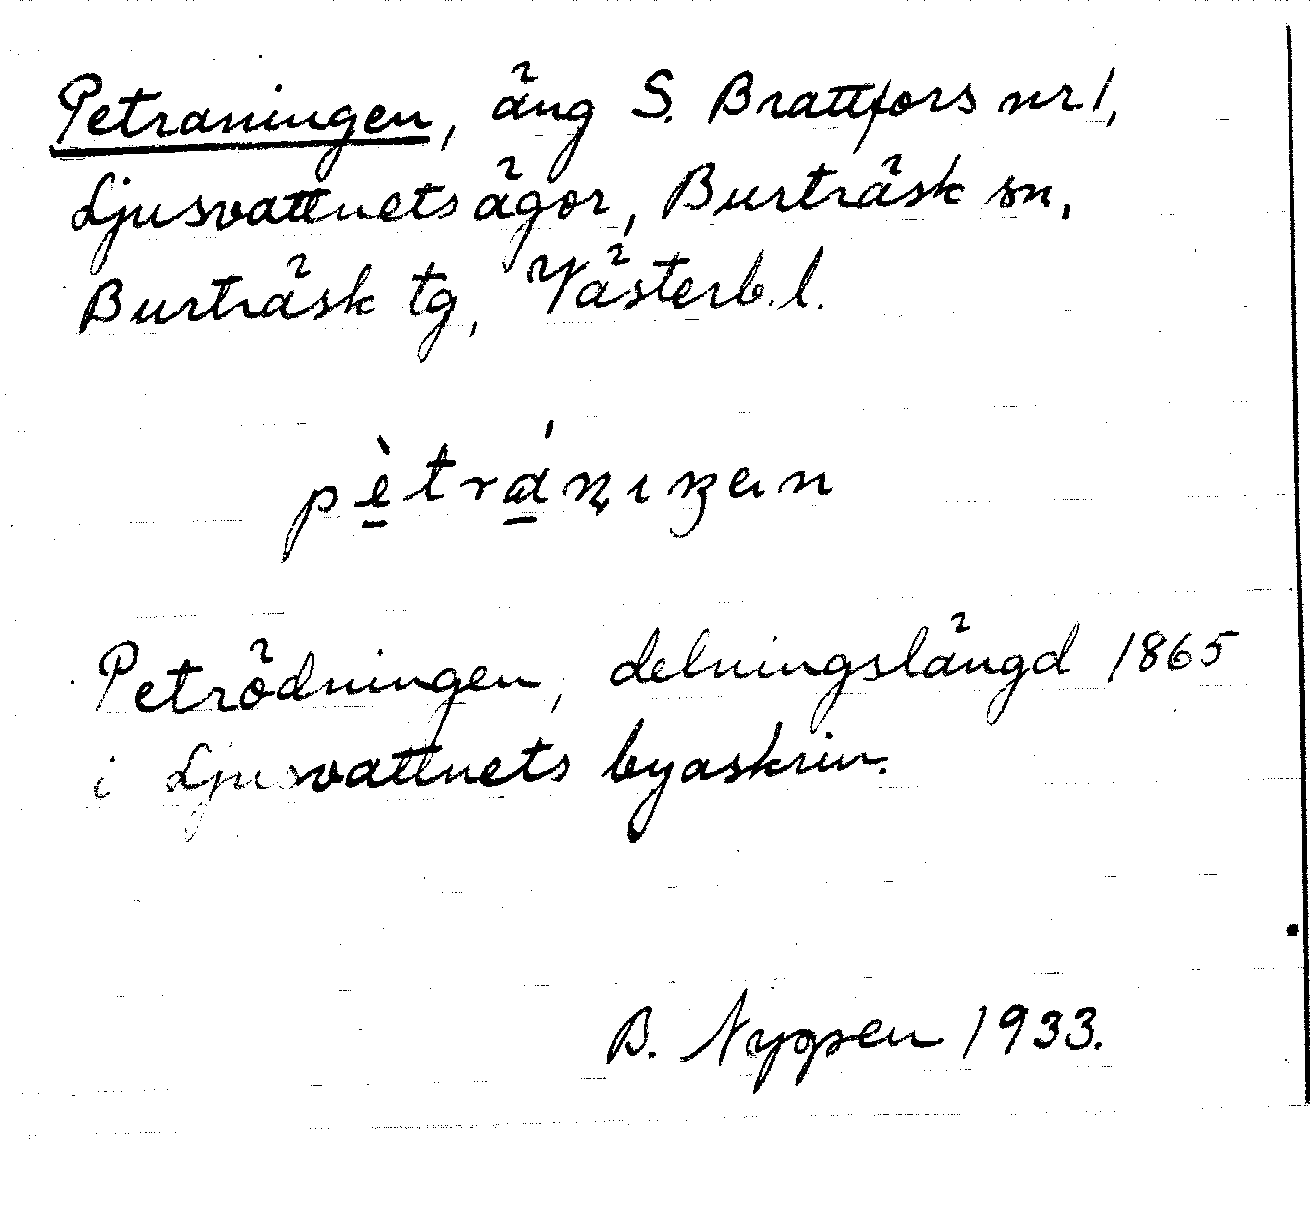 Petraningen, äng S. Brattfors nr 1,
Ljusvattnets ägor, Burträsk sn,
Burträsk tg, Västerb. l.
pètránıŋen
Petrödningen, delningslängd 1865
i Ljusvattnets byaskrin.
B. 1933.